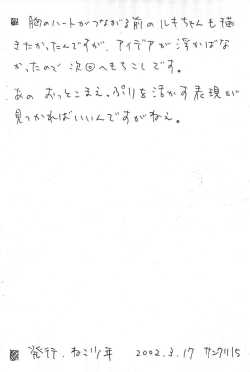 胸のハートがつながる前のルキちゃんも描
きたかったんですが、アイデアが浮かばな
かったので次回へもちこしです。
あの おっとこまえ。ぷりを活かす表現が
見つかればいいんですがねぇ。
発行.ねこ少年 2002.3.17 サンクリ15